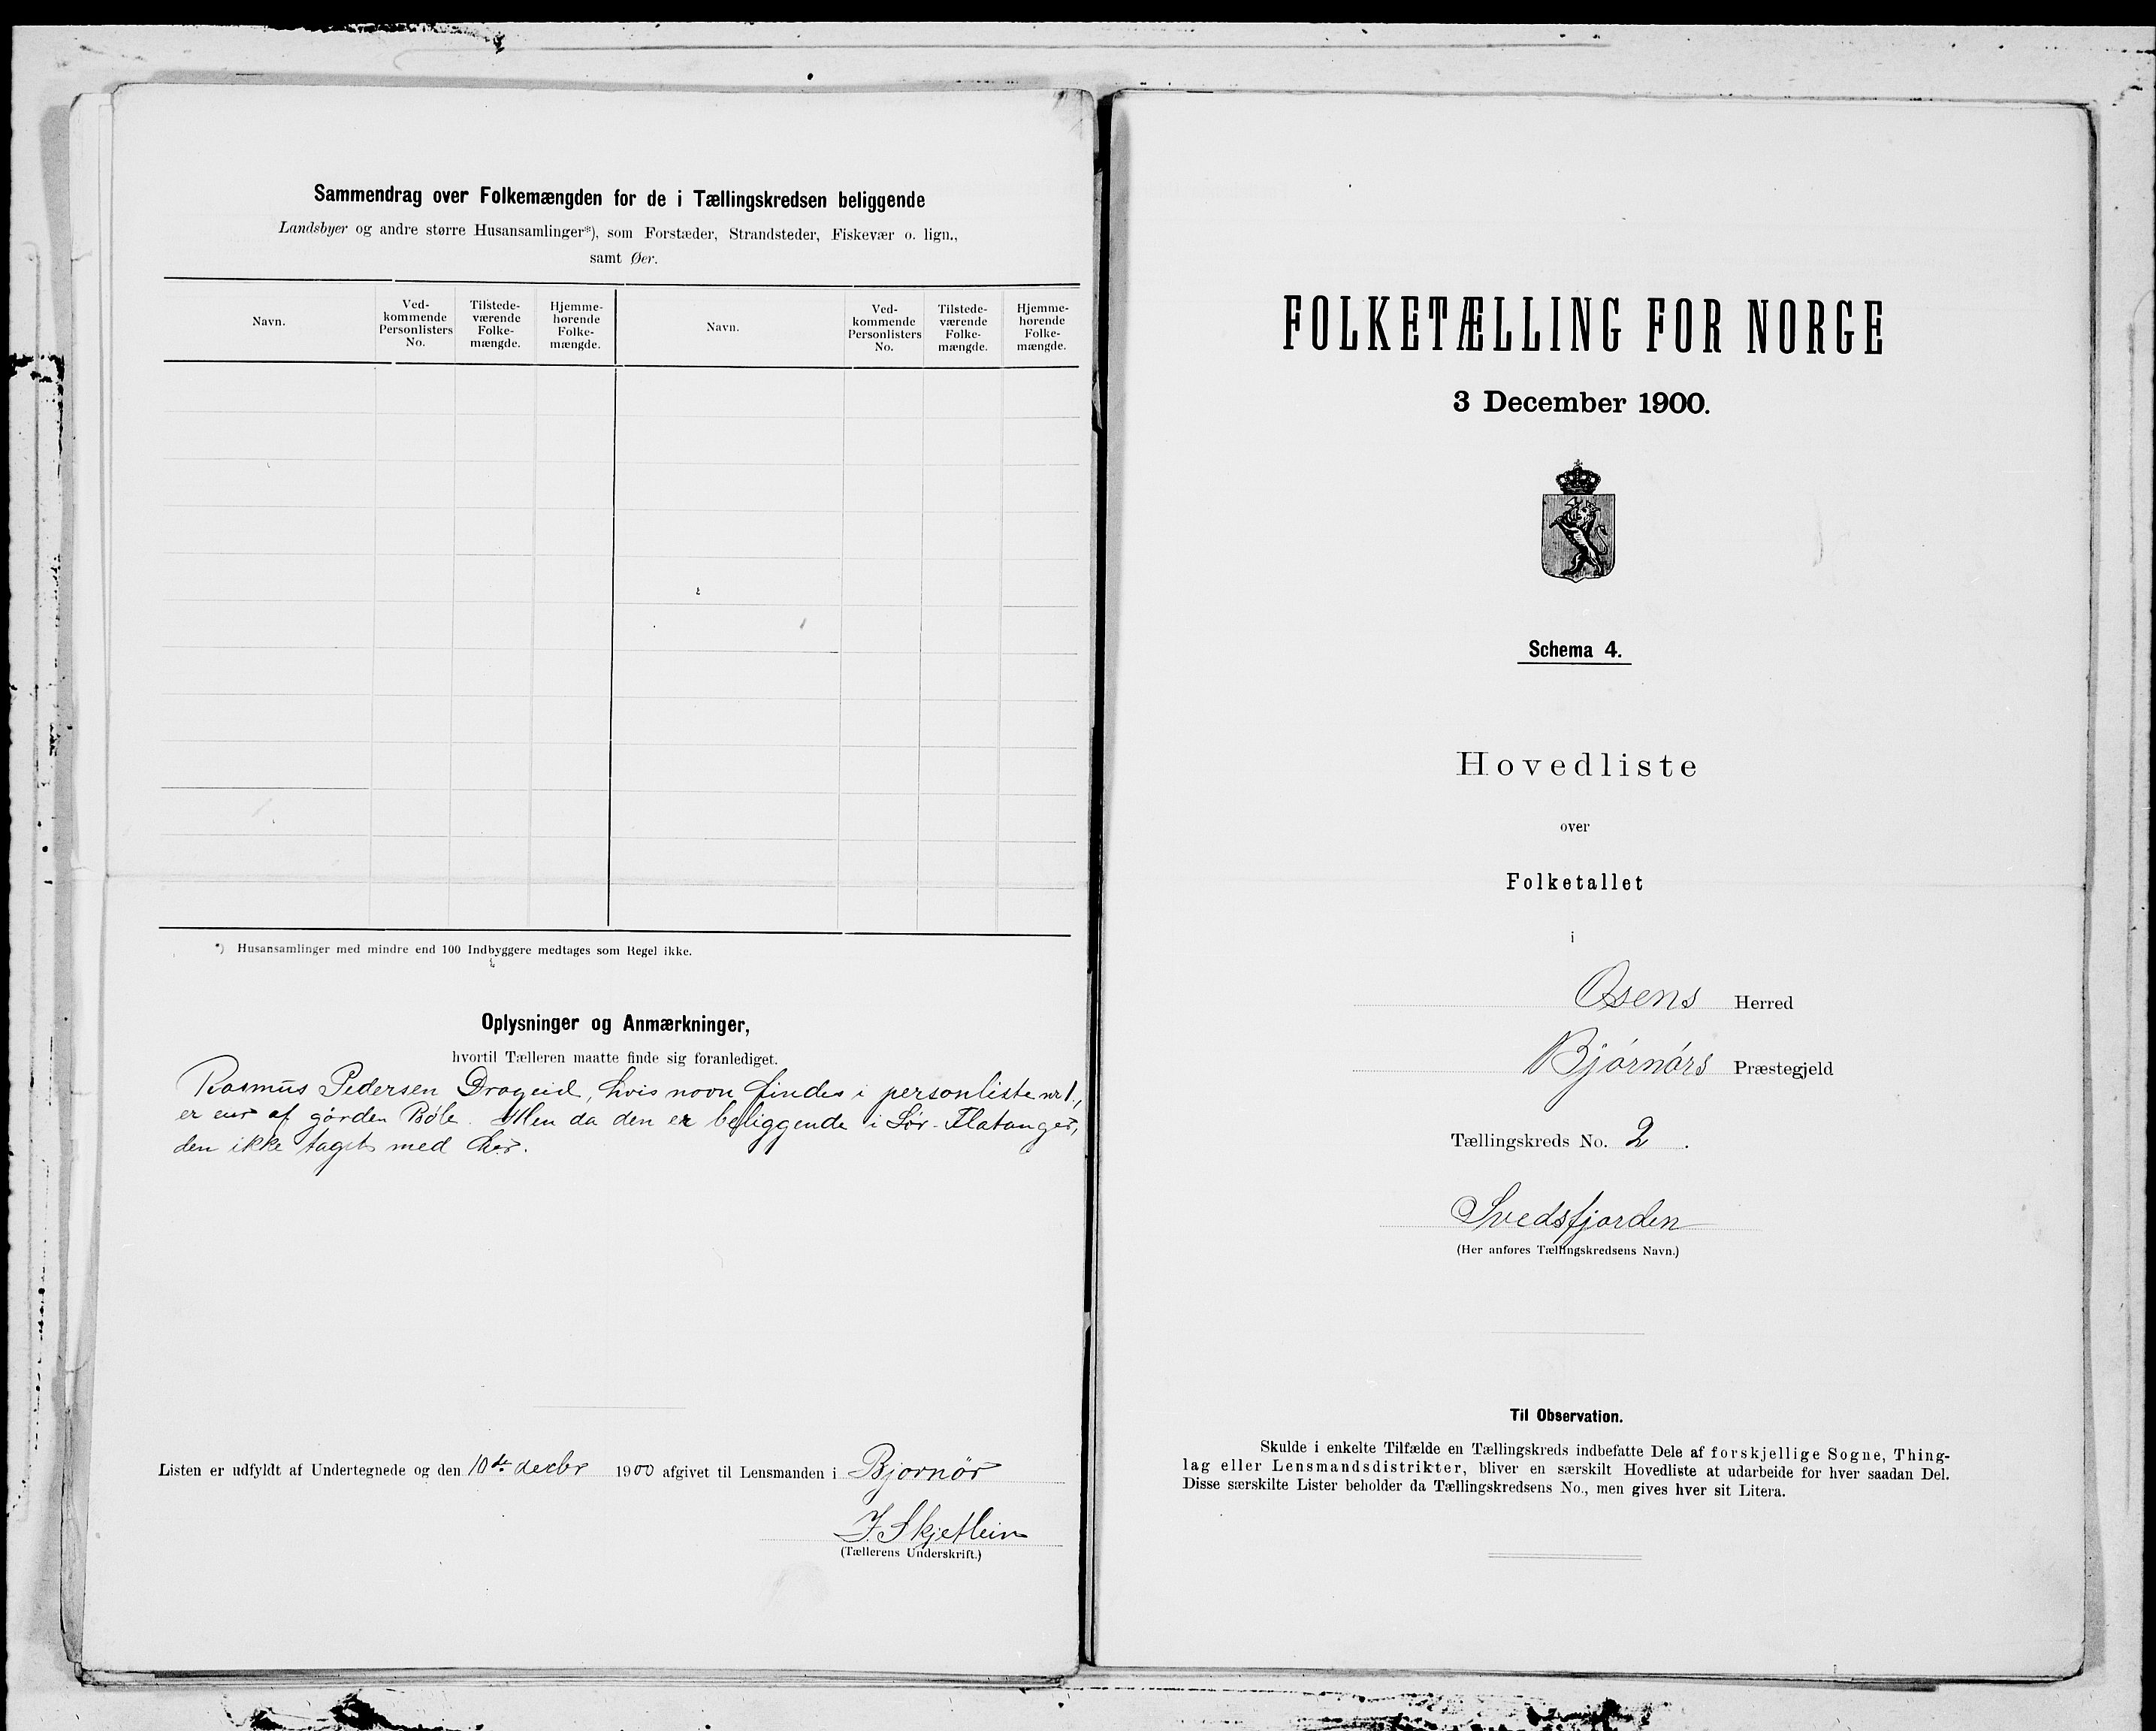 Sammendrag over Folkemængden for de i Tællingskredsen beliggende
Landsbyer og andre større Husansamlinger*), som Forstæder, Strandsteder, Fiskevær o. lign.,
samt Øer.
Navn.
Ved-
kommende
Personlisters
No.
Tilstede-
værende
Folke-
mængde.
Hjemme-
hørende
Folke-
mængde.
Navn.
Ved-
kommende
Personlisters
No.
Tilstede-
værende
Folke-
mængde.
Hjemme-
hørende
Folke-
mængde.
*) Husansamlinger med mindre end 100 Indbyggere medtages som Regel ikke.
Oplysninger og Anmærkninger,
hvortil Tælleren maatte finde sig foranlediget.
Rasmus Pedersen Drageid, hvis navn findes i personliste nr 1.,
er eier af gården Bøle. Men da den er beliggende i Sør-Flatanger,
den ikke taget med her.
Listen er udfyldt af Undertegnede og den 10de decbr 1900 afgivet til Lensmanden i Bjørnør
J. Skjetlein
(Tællerens Underskrift.)
FOLKETÆLLING FOR NORGE
3 December 1900.
Schema 4.
Hovedliste
over
Folketallet
i
Osens Herred
Bjørnørs Præstegjeld
Tællingskreds No. 2.
Svedsfjorden
(Her anføres Tællingskredsens Navn.)
Til Observation.
Skulde i enkelte Tilfælde en Tællingskreds indbefatte Dele af forskjellige Sogne, Thing-
lag eller Lensmandsdistrikter, bliver en særskilt Hovedliste at udarbeide for hver saadan Del.
Disse særskilte Lister beholder da Tællingskredsens No., men gives hver sit Litera.